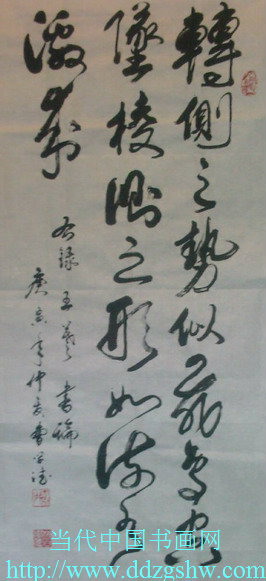 轉側之勢似飛鳥空
墜棱側之形如流水
激來
右録王羲之書論
庚寅年仲夏曹
当代中国书画网
http://www.ddzgshw.com